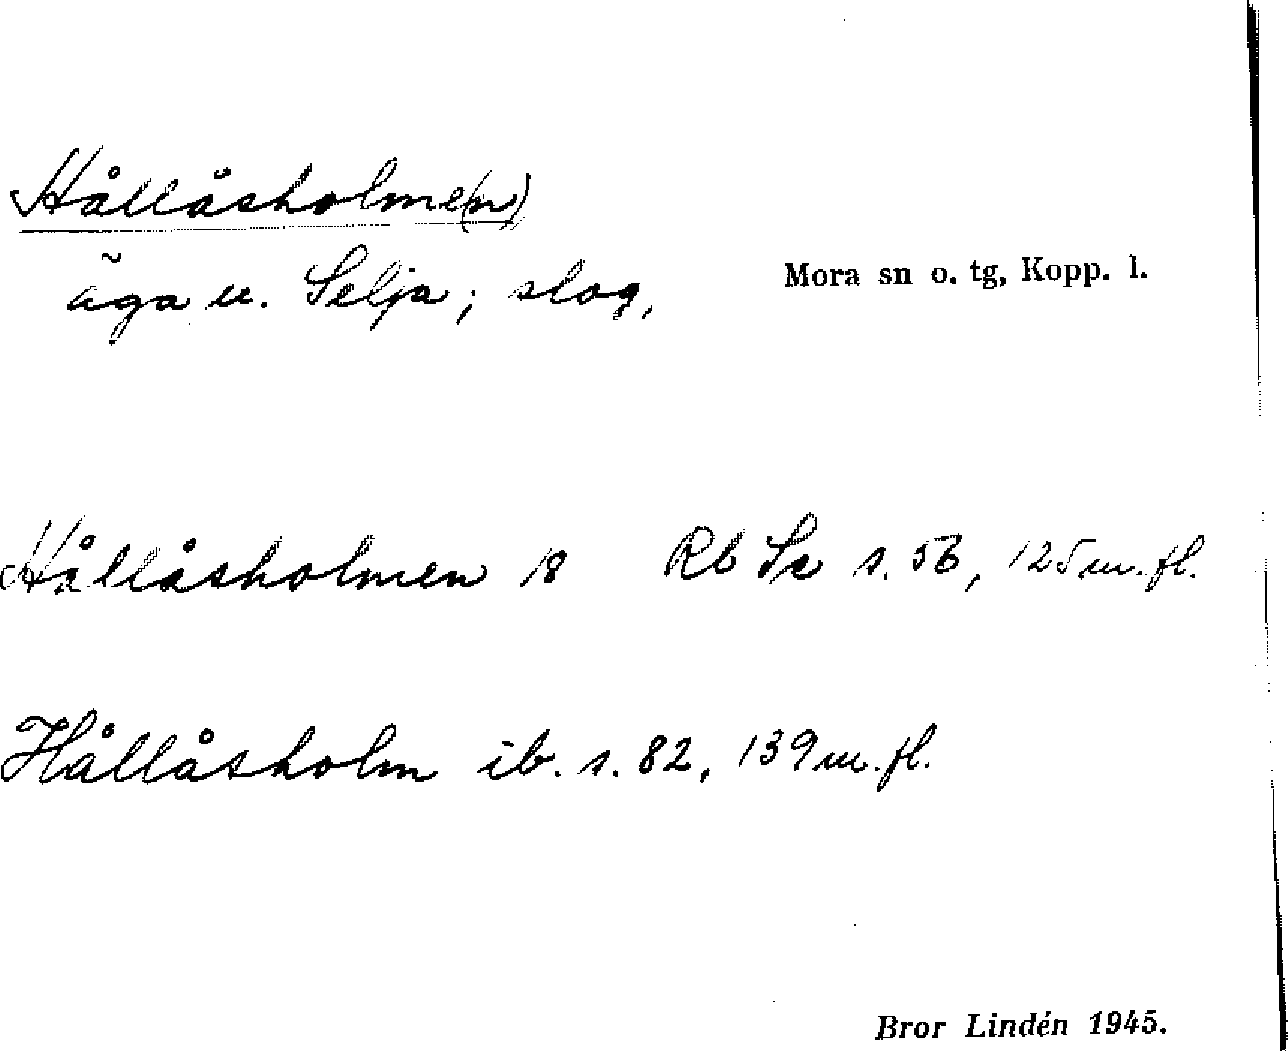 Hållåsholme(n)
äga u. Selja; slog,
Mora sn o. tg, Kopp. l.
Hållåsholmen 18 Rb Se s. 56, 125 m. fl.
Hållåsholm ib. s. 82, 139 m. fl.
Bror Lindén 1945.